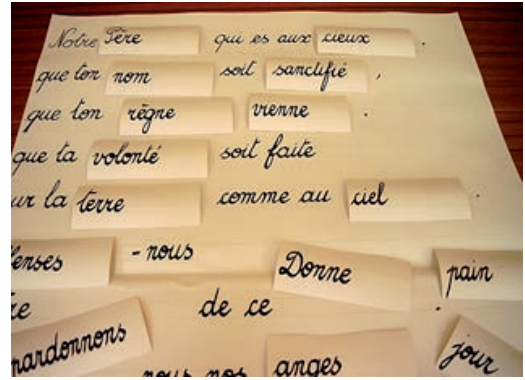 Notre Père qui es aux cieux.
que ton nom soit sanctifié,
que ton règne vienne.
que ta volonté soit faite
ur la terre comme au ciel.
enses -nous Donne pain
de ce .
pardonnons nous nos anges jour